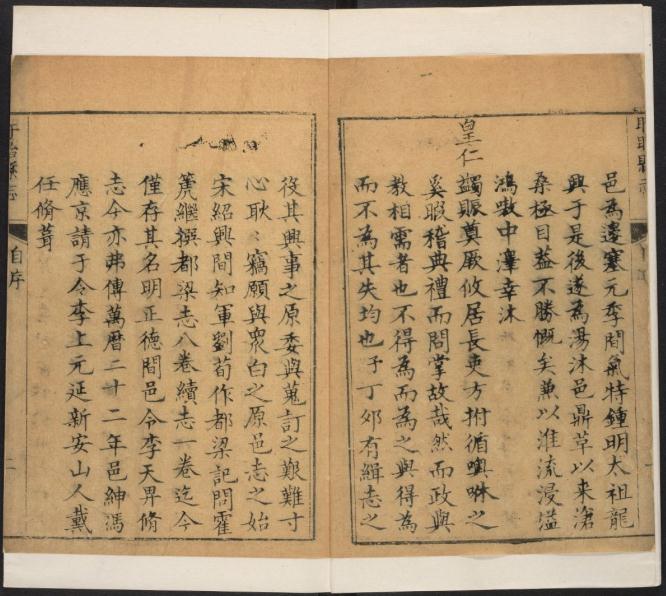 邑為邊塞元季閒氣特鍾明太祖龍
興于是後遂為湯沐邑鼎草以来滄
桑極目葢不勝慨矣兼以淮流漫溢
鴻嗷中澤幸沐
皇仁
蠲賑奠厥攸居長吏方拊循噢咻之
奚暇稽典禮而問掌故哉然而政與
教相需者也不得為而為之與得為
而不為其失均也予丁夘有緝志之
役其興事之原委與蒐訂之艱難寸
心耿〻竊願與衆白之原邑志之始
宋紹興間知軍劉荀作都梁記問霍
箎繼撰都梁志八卷續志一卷迄今
僅存其名明正德間邑令李天畀脩
志今亦弗傳萬曆二十二年邑紳馮
應京請于令李上元延新安山人戴
任脩葺
盱眙縣志
自序